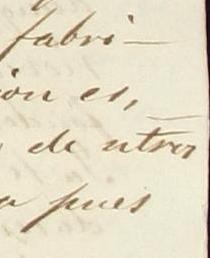 fabri—
ion es,
de otros
a pues